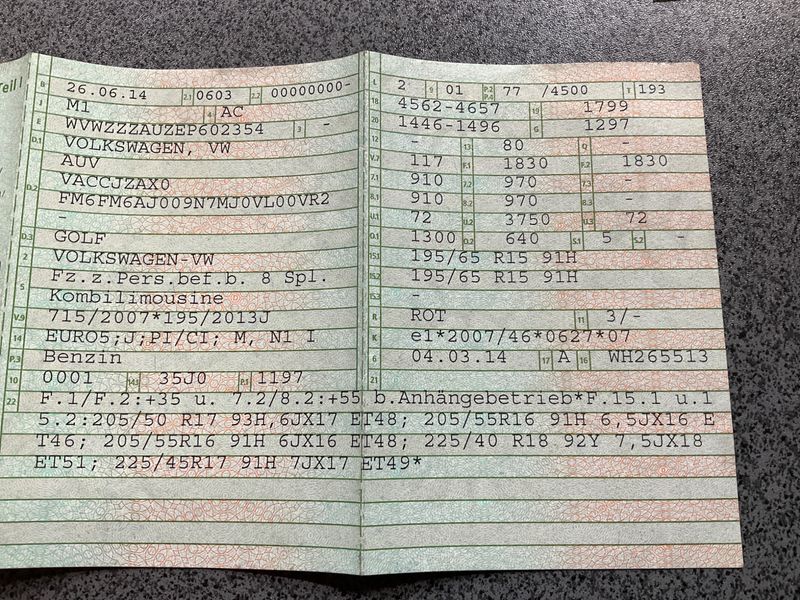 Teil I
B 26.06.14 2.1 0603 2.2 00000000-
J M1 4 AC
E WVWZZZAUZEP602354 3 -
D.1 VOLKSWAGEN, VW
AUV
D.2 VACCJZAX0
FM6FM6AJ009N7MJ0VL00VR2
-
D.3 GOLF
2 VOLKSWAGEN-VW
5 Fz.z.Pers.bef.b. 8 Spl.
Kombilimousine
V.9 715/2007*195/2013J
14 EURO5;J;PI/CI; M, N1 I
P.3 Benzin
10 0001 14.1 35J0 P.1 1197
L 2 9 01 P.2 P.4 77 /4500 T 193
18 4562-4657 19 1799
20 1446-1496 G 1297
12 - 13 80 Q -
V.7 117 F.1 1830 F.2 1830
7.1 910 7.2 970 7.3 -
8.1 910 8.2 970 8.3 -
U.1 72 U.2 3750 U.3 72
O.1 1300 O.2 640 S.1 5 S.2 -
15.1 195/65 R15 91H
15.2 195/65 R15 91H
15.3 -
R ROT 11 3/-
K e1*2007/46*0627*07
6 04.03.14 17 A 16 WH265513
21
22 F.1/F.2:+35 u. 7.2/8.2:+55 b.Anhängebetrieb*F.15.1 u.1
5.2:205/50 R17 93H,6JX17 ET48; 205/55R16 91H 6,5JX16 E
T46; 205/55R16 91H 6JX16 ET48; 225/40 R18 92Y 7,5JX18
ET51; 225/45R17 91H 7JX17 ET49*